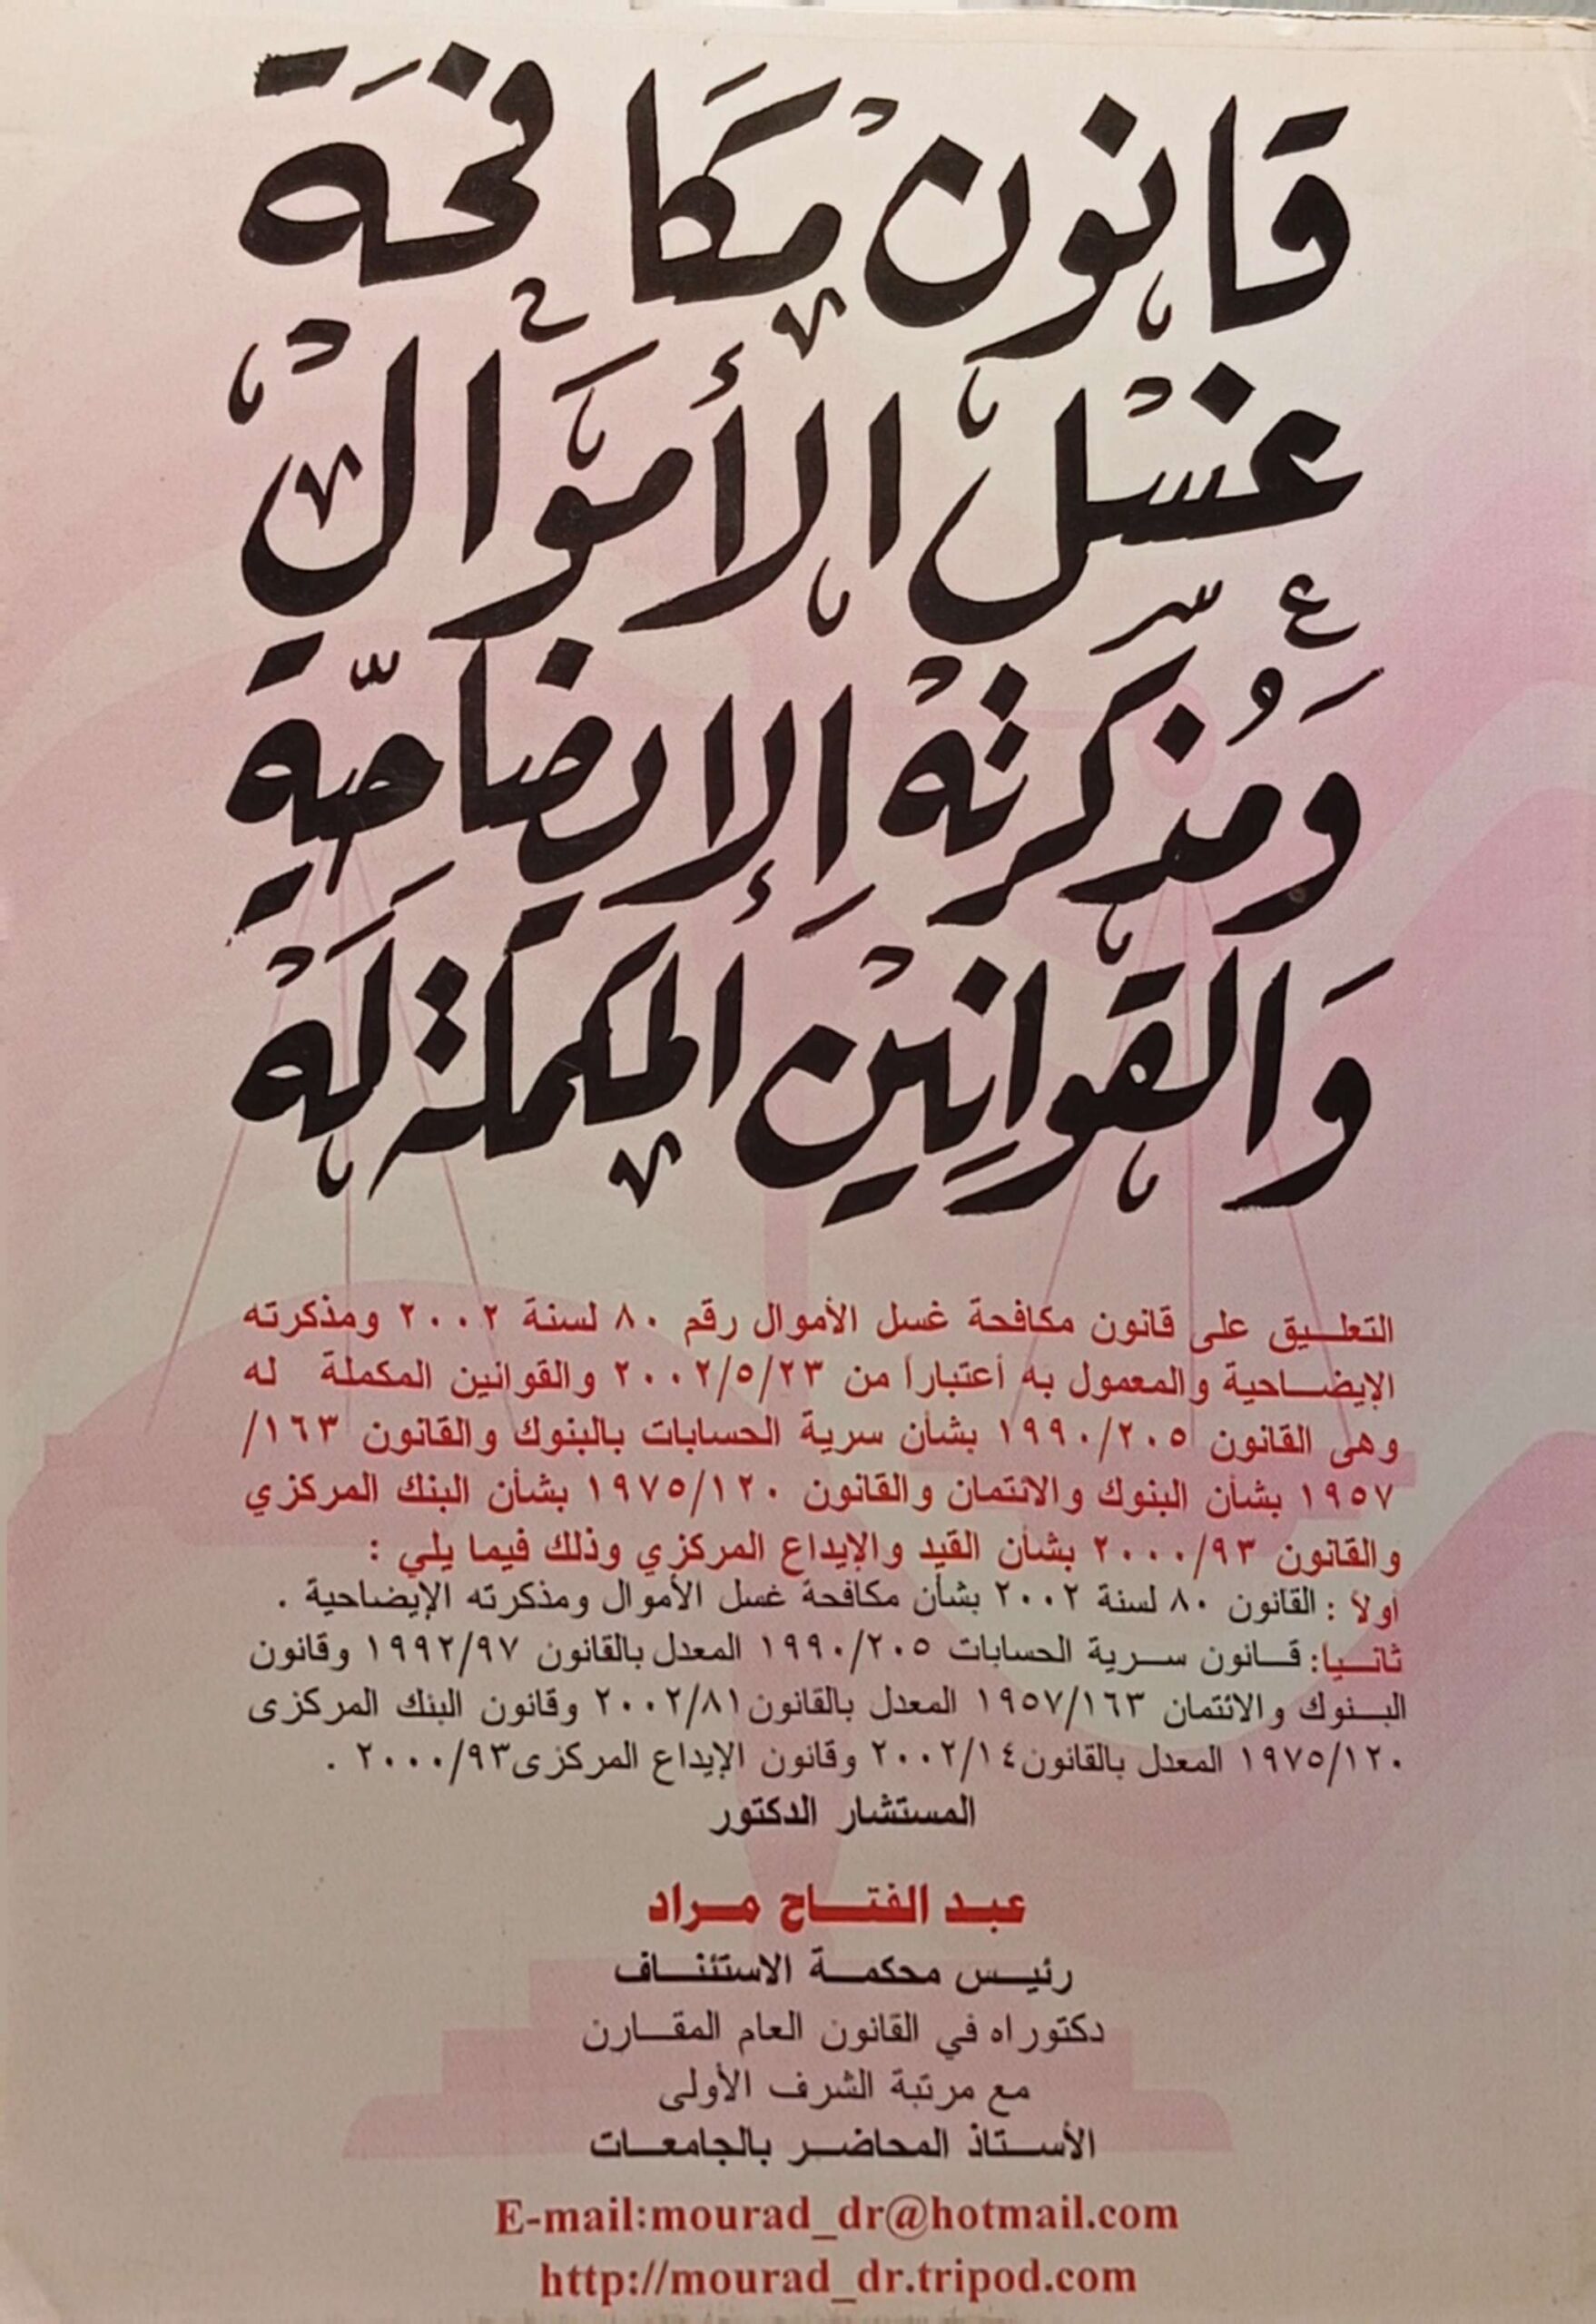 قانون مكافحة
غسل الأموال
ومذكرته الإيضاحية
والقوانين المكملة له
التعليق على قانون مكافحة غسل الأموال رقم ٨٠ لسنة ٢٠٠٢ ومذكرته
الإيضاحية والمعمول به أعتباراً من ٢٠٠٢/٥/٢٣ والقوانين المكملة له
وهى القانون ١٩٩٠/٢٠٥ بشأن سرية الحسابات بالبنوك والقانون ١٦٣/
١٩٥٧ بشأن البنوك والائتمان والقانون ١٩٧٥/١٢٠ بشأن البنك المركزي
والقانون ٢٠٠٠/٩٣ بشأن القيد والإيداع المركزي وذلك فيما يلي :
أولاً : القانون ٨٠ لسنة ٢٠٠٢ بشأن مكافحة غسل الأموال ومذكرته الإيضاحية .
ثانيا: قانون سرية الحسابات ١٩٩٠/٢٠٥ المعدل بالقانون ١٩٩٢/٩٧ وقانون
البنوك والائتمان ١٩٥٧/١٦٣ المعدل بالقانون ٢٠٠٢/٨١ وقانون البنك المركزى
١٩٧٥/١٢٠ المعدل بالقانون ٢٠٠٢/١٤ وقانون الإيداع المركزى ٢٠٠٠/٩٣ .
المستشار الدكتور
عبد الفتاح مراد
رئيس محكمة الاستئناف
دكتوراه في القانون العام المقارن
مع مرتبة الشرف الأولى
الأستاذ المحاضر بالجامعات
E-mail:mourad_dr@hotmail.com
http://mourad_dr.tripod.com